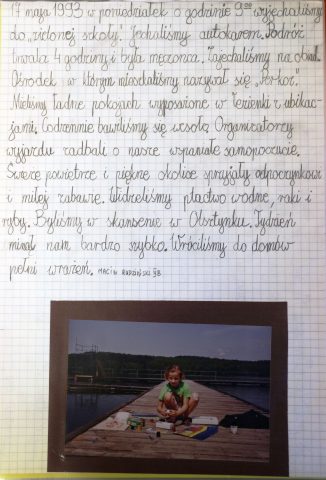 17 maja 1993 w poniedziałek o godzinie 9⁰⁰ wyjechaliśmy
do „zielonej szkoły". Jechaliśmy autokarem. Podróż
trwała 4 godziny i była męcząca. Zajechaliśmy na obiad.
Ośrodek w którym mieszkaliśmy nazywał się
Mieliśmy ładne pokoje wyposażone w łazienki z ubika-
cjami. Codziennie bawiliśmy się wesoło. Organizatorzy
wyjazdu zadbali o nasze wspaniałe samopoczucie.
Świeże powietrze i piękne okolice sprzyjały odpoczynkowi
i miłej zabawie. Widzieliśmy ptactwo wodne, raki i
ryby. Byliśmy w skansenie w Olsztynku. Tydzień
minął nam bardzo szybko. Wróciliśmy do domów
pełni wrażeń. MACIEK RUDZIŃSKI